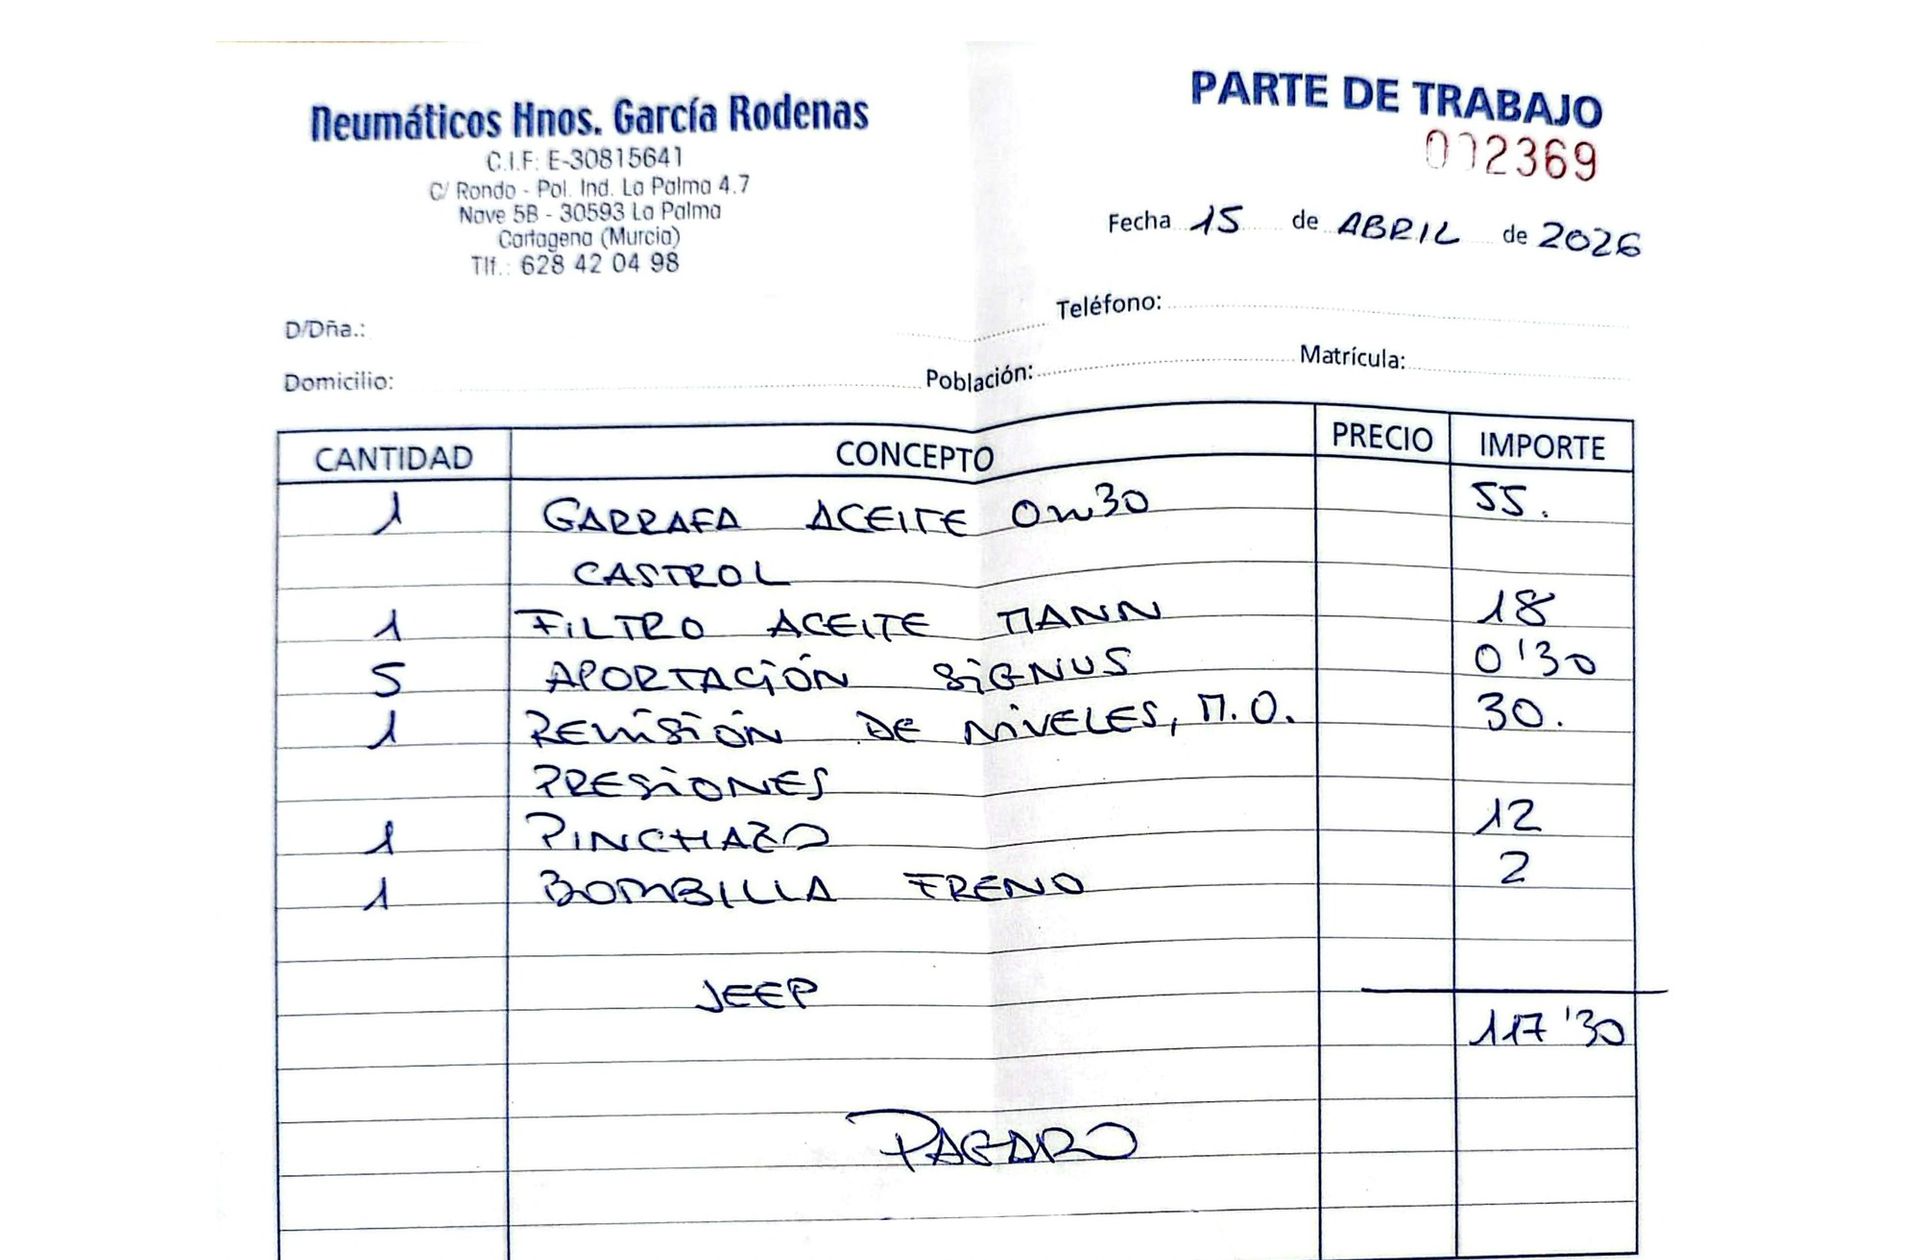 Neumáticos Hnos. García Rodenas
C.I.F: E-30815641
C/ Rondo - Pol. Ind. La Palma 4.7
Nave 5B - 30593 La Palma
Cartagena (Murcia)
Tlf.: 628 42 04 98
PARTE DE TRABAJO
002369
Fecha 15 de ABRIL de 2026
D/Dña.:
Teléfono:
Domicilio:
Población:
Matrícula:
CANTIDAD CONCEPTO PRECIO IMPORTE
1 GARRAFA ACEITE 0w30 55.
CASTROL
1 FILTRO ACEITE MANN 18
5 APORTACIÓN SIGNUS 0'30
1 REVISIÓN DE NIVELES, M.O. 30.
PRESIONES
1 PINCHAZO 12
1 BOMBILLA FRENO 2
JEEP
117'30